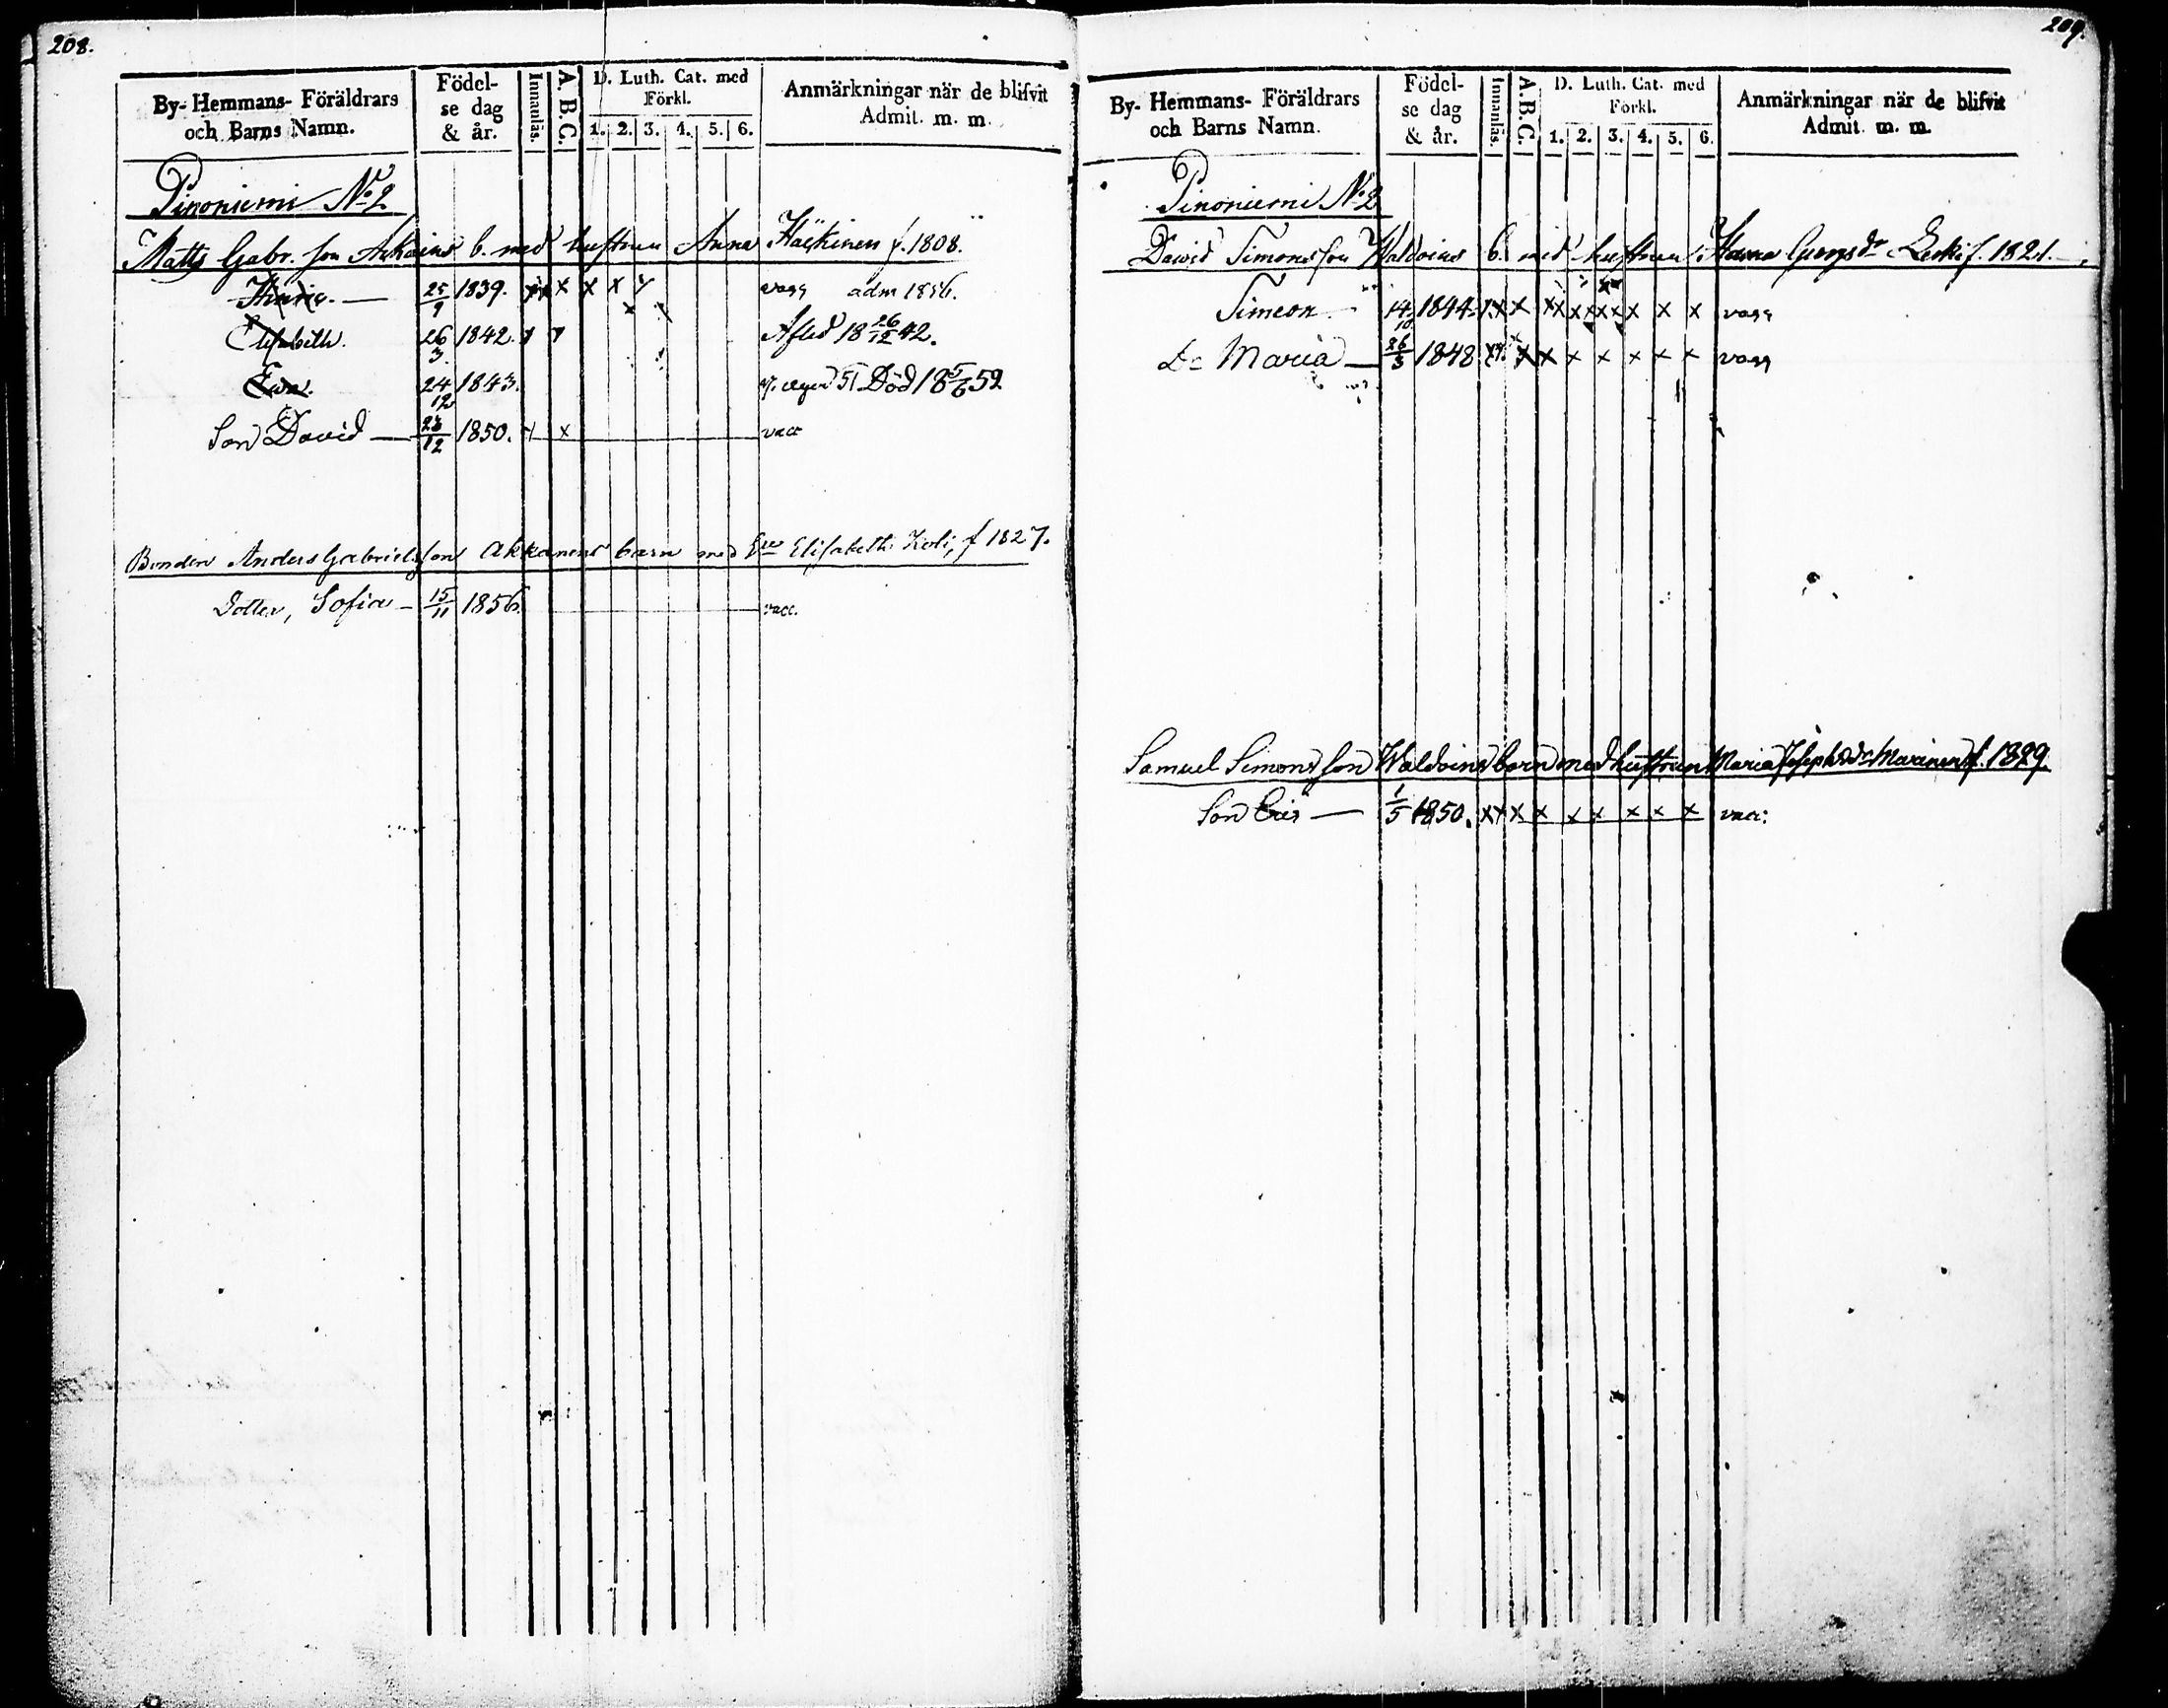 208.
By- Hemmans- Föräldrars och Barns Namn.
Födelse dag & år.
Innanläs.
A. B. C.
D. Luth. Cat. med Förkl.
1. 2. 3. 4. 5. 6.
Anmärkningar när de blifvit Admit. m. m.
Pinoniemi No 2
Matts Gabr. son b. med hustrun Anna Häckinen f. 1808.
25/9 1839. x x x x adm 1856.
Elisabeth. 26/3. 1842. Afled 18 26/12 42.
Ewa. 24/12 1843. Död 18 5/6 52
Son David — 23/12 1850. x vacc
Bonden Anders Gabrielsson Akkanens barn med Elisabeth f 1827.
Dotter, Sofia — 15/11 1856. vacc.
209.
By- Hemmans- Föräldrars och Barns Namn.
Födelse dag & år.
Innanläs.
A. B. C.
D. Luth. Cat. med Förkl.
1. 2. 3. 4. 5. 6.
Anmärkningar när de blifvit Admit. m. m.
Pinoniemi No 2
David Simonsson Waldoins b. med hustrun f. 1821.
Simeon 14/10 1844 x x x x x x x x vacc
Do Maria — 26/3 1848 x x x x x x x vacc
Samuel Simonsson Waldoins barn med hustrun Maria Josephsdr Marinen f. 1829.
Son Eric — 1/5 1850. x x x x x x x x x vacc: